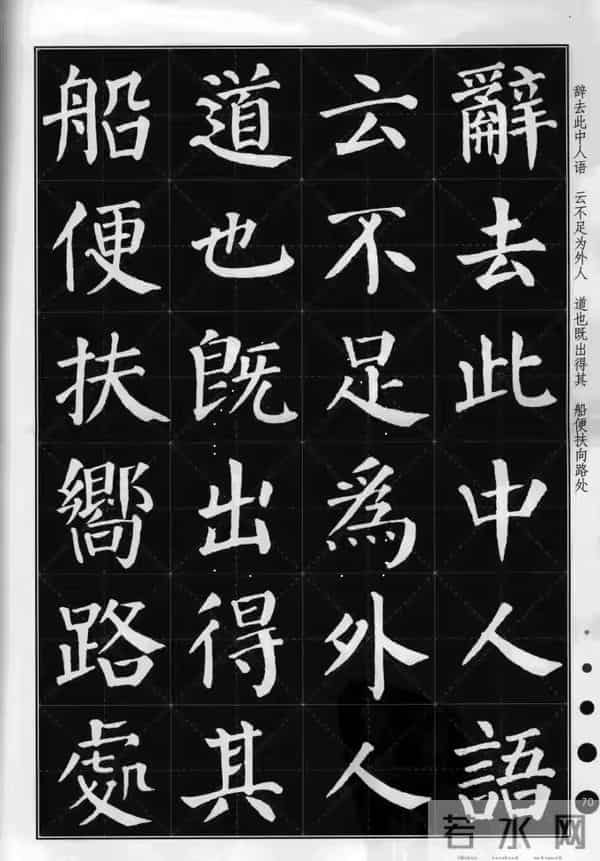 辭去此中人語
云不足爲外人
道也既出得其
船便扶嚮路處
辞去此中人语 云不足为外人 道也既出得其 船便扶向路处
70
若水网